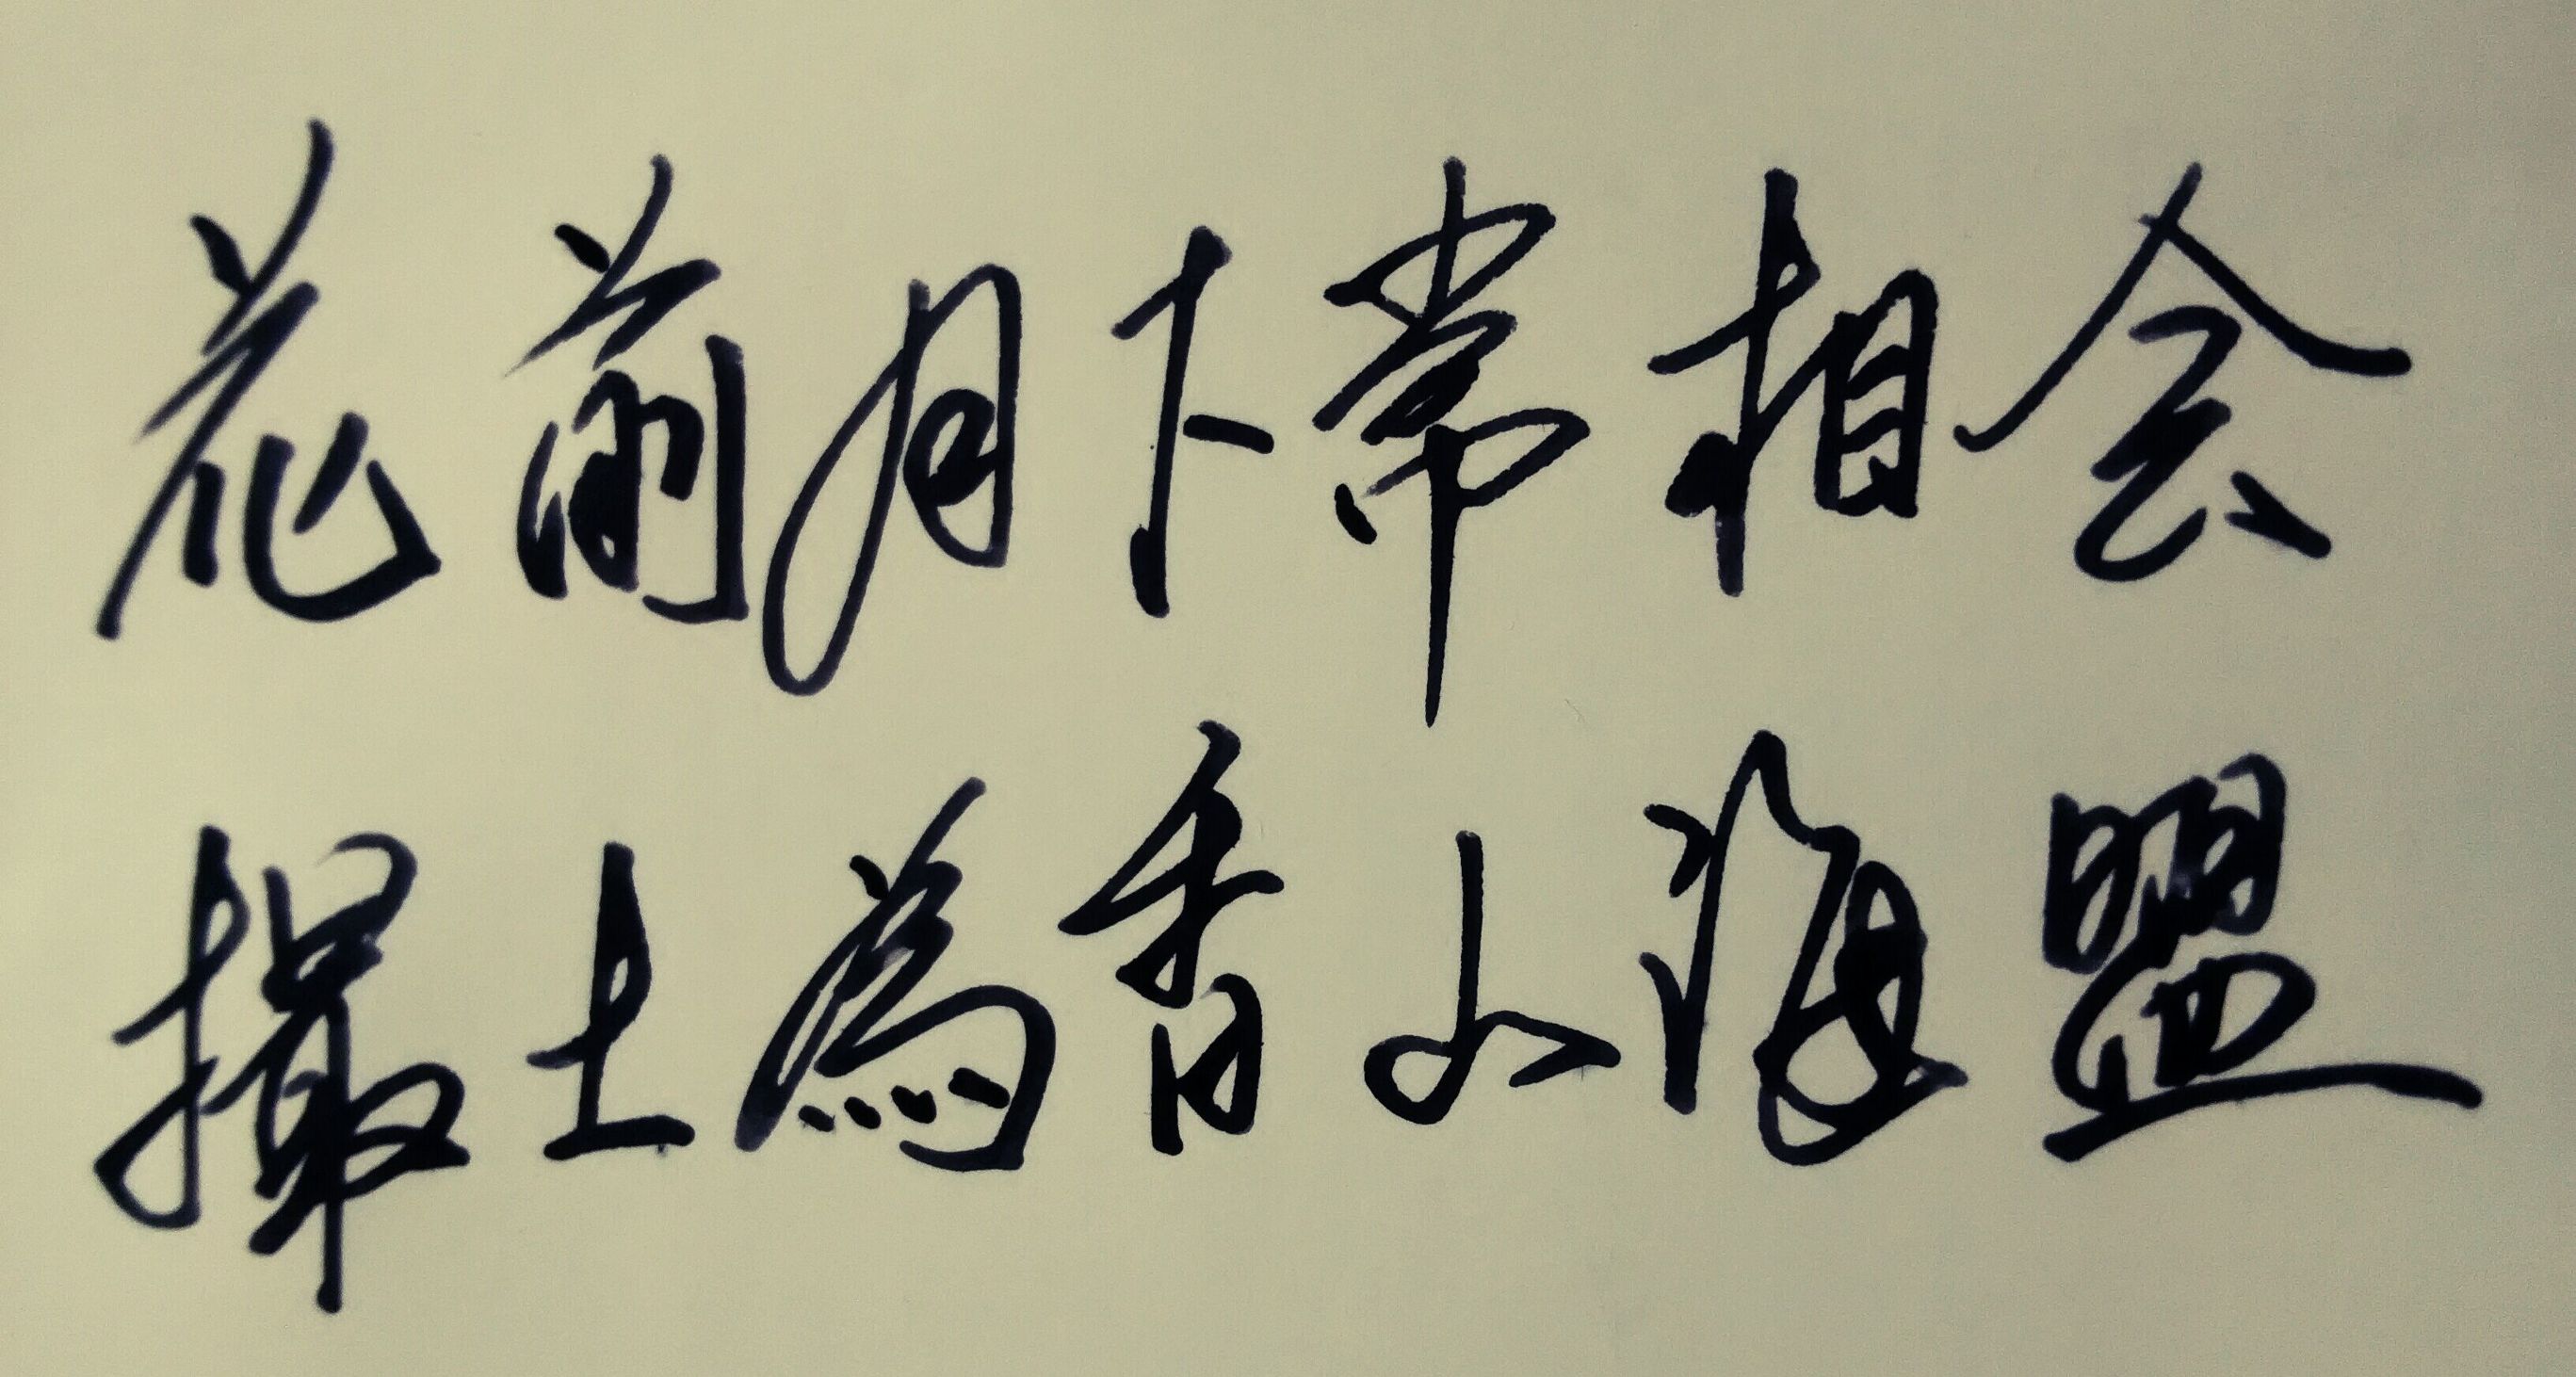 花前月下常相会
撮土為香山海盟